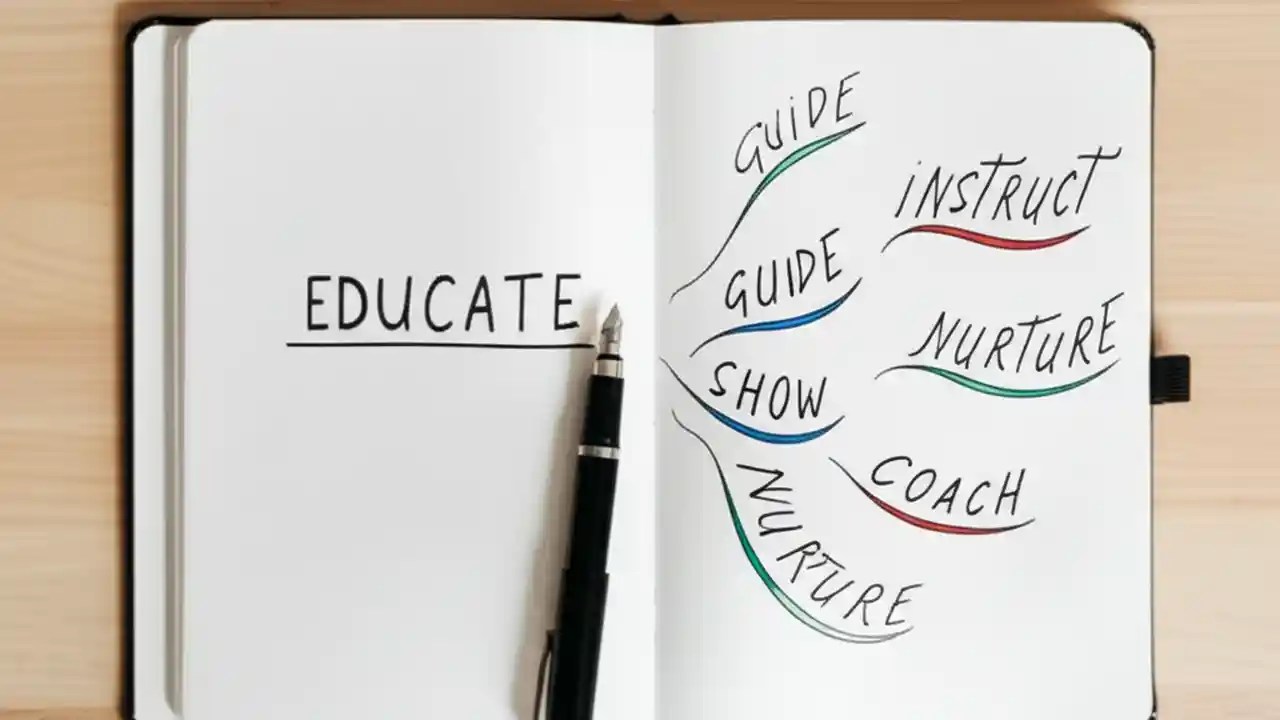 EDUCATE
GUIDE
INSTRUCT
GUIDE
NURTURE
SHOW
COACH
NURTURE